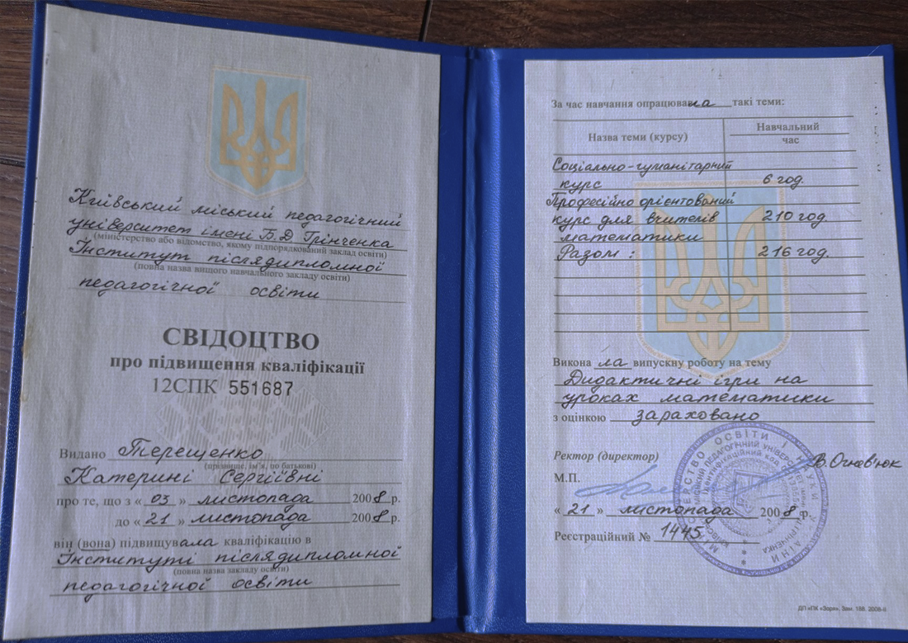 Київський міський педагогічний
університет імені Б.Д Грінченка
(міністерство або відомство, якому підпорядкований заклад освіти)
Інститут післядипломної
(повна назва вищого навчального закладу освіти)
педагогічної освіти
СВІДОЦТВО
про підвищення кваліфікації
12СПК 551687
Видано Терещенко
(прізвище, ім'я, по батькові)
Катерині Сергіївні
про те, що з « 03 » листопада 2008 р.
до « 21 » листопада 2008 р.
він (вона) підвищувала кваліфікацію в
Інституті післядипломної
(повна назва закладу освіти)
педагогічної освіти
За час навчання опрацювала такі теми:
Назва теми (курсу) Навчальний
час
Соціально-гуманітарний
курс 6 год.
Професійно орієнтований
курс для вчителів 210 год.
математики
Разом : 216 год.
Виконала випускну роботу на тему
Дидактичні ігри на
уроках математики
з оцінкою зараховано
Ректор (директор) В.Огнев'юк
М.П.
« 21 » листопада 2008 р.
Реєстраційний № 1445